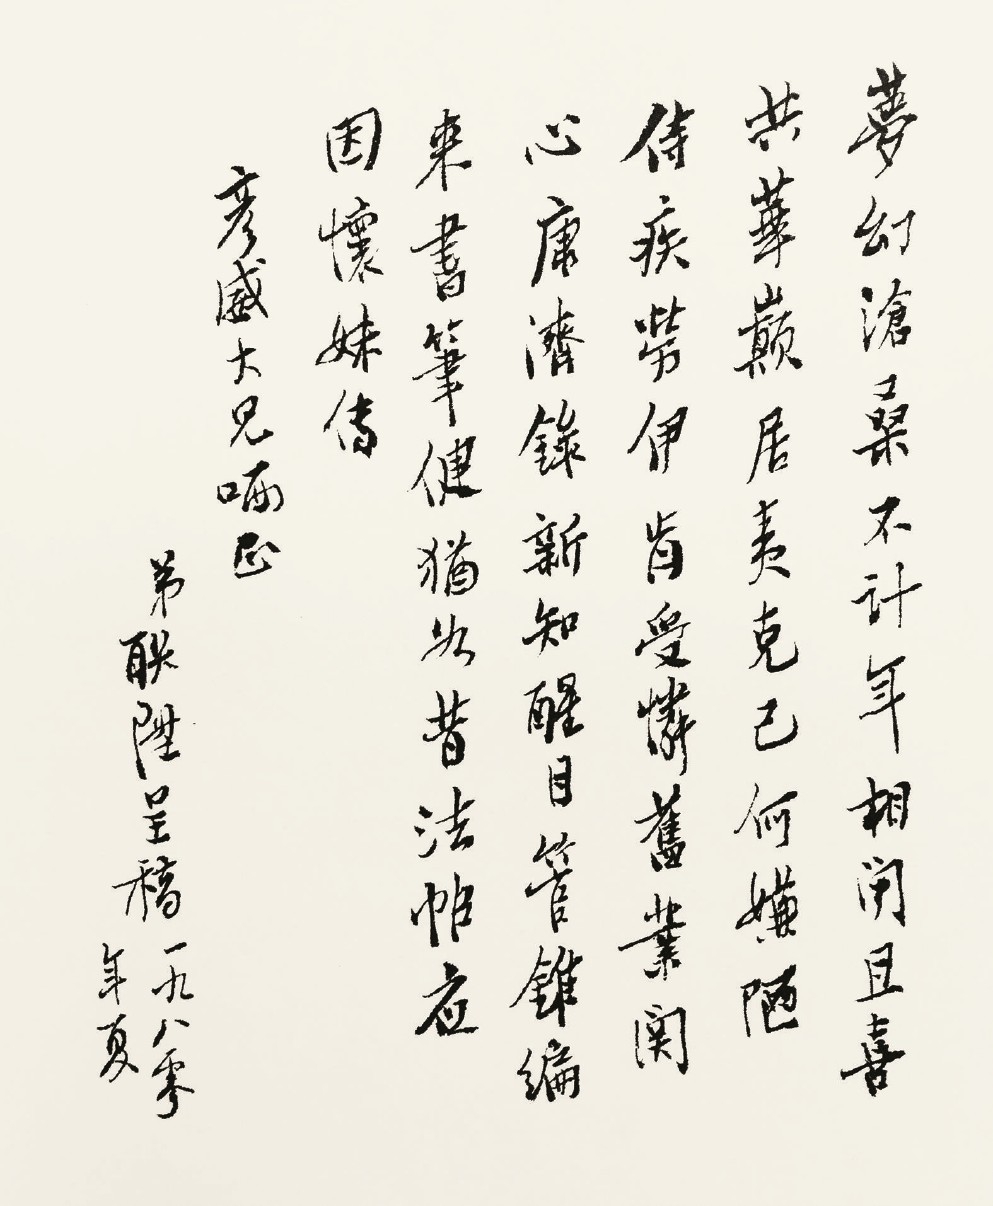 夢幻滄桑不計年相聞且喜
共華巔居夷克己何嫌陋
侍疾勞伊肯受憐舊業関
心康濟錄新知醒目管錐編
來書筆健猶如昔法帖應
因懷妹傳
彥威大兄哂正
弟聯陞呈稿一九八零
年夏